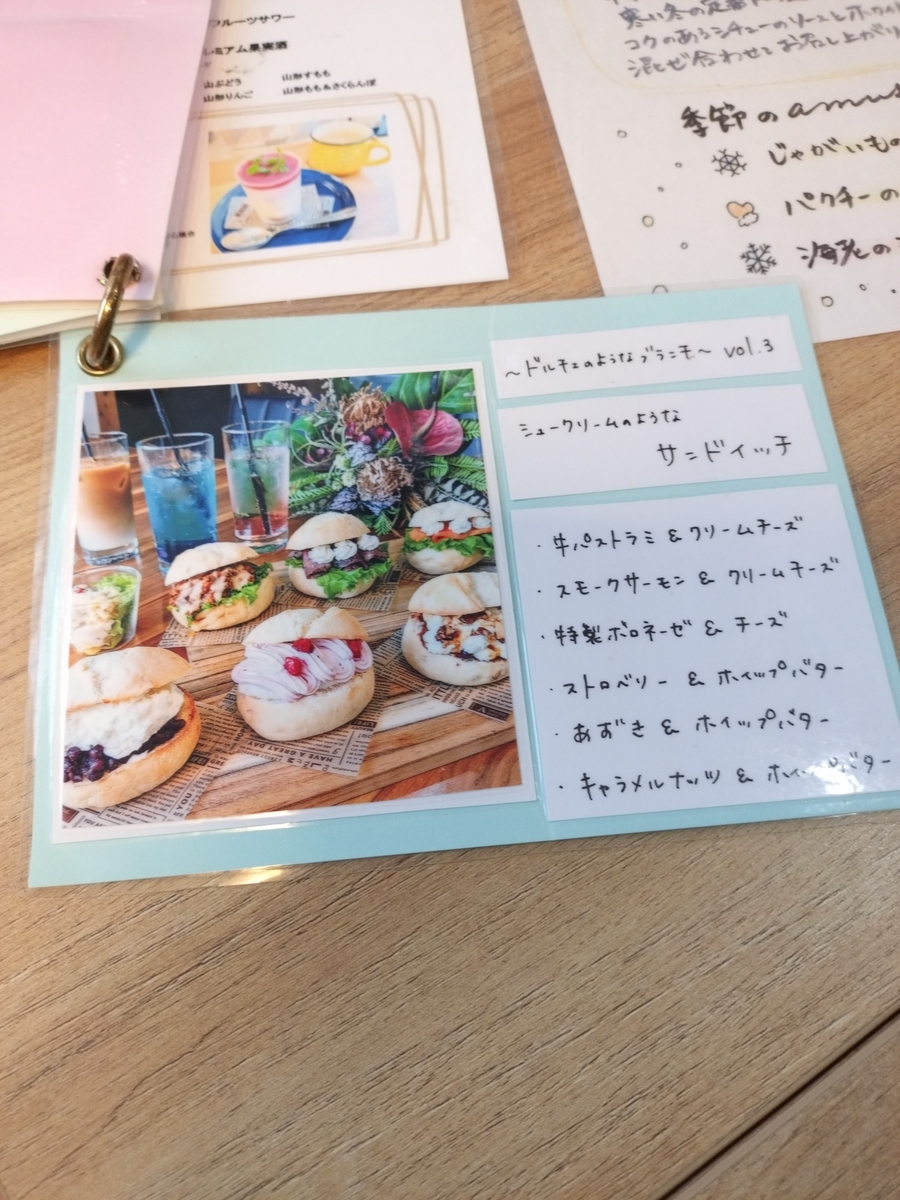 フルーツサワー
ミアム果実酒
山ぶどう 山形すもも
山形りんご 山形もも&さくらんぼ
寒い冬の定番
コクのあるシチューのソースと
混ぜ合わせてお召し上がり
季節のamus
じゃがいもの
パクチーの
海老の
～ドルチェのようなブランチ～ vol.3
シュークリームのような
サンドイッチ
・牛パストラミ & クリームチーズ
・スモークサーモン & クリームチーズ
・特製ボロネーゼ & チーズ
・ストロベリー & ホイップバター
・あずき & ホイップバター
・キャラメルナッツ & ホイップバター
HAVE A GREAT DAY